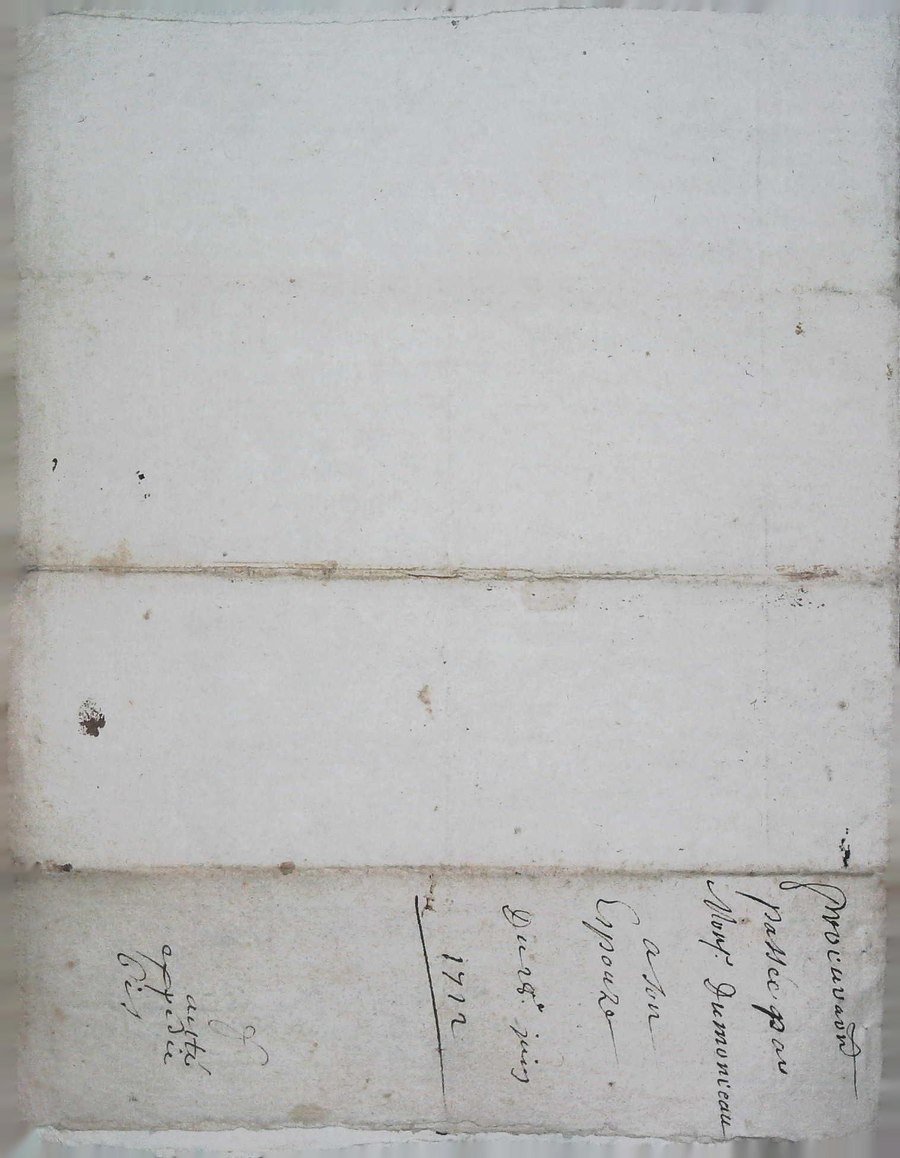 procuraõn
passée par
Monsr. Dumonceau
a son
Espouze
Du 28e juin
1722
acpté
expédié
bis